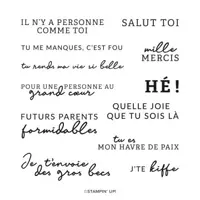 IL N'Y A PERSONNE
COMME TOI
SALUT TOI
TU ME MANQUES, C'EST FOU
mille
MERCIS
tu rends ma vie si belle
POUR UNE PERSONNE AU
grand cœur
HÉ!
QUELLE JOIE
QUE TU SOIS LÀ
FUTURS PARENTS
formidables
tu es
MON HAVRE DE PAIX
Je t'envoie
des gros becs
J'TE kiffe
©STAMPIN' UP!